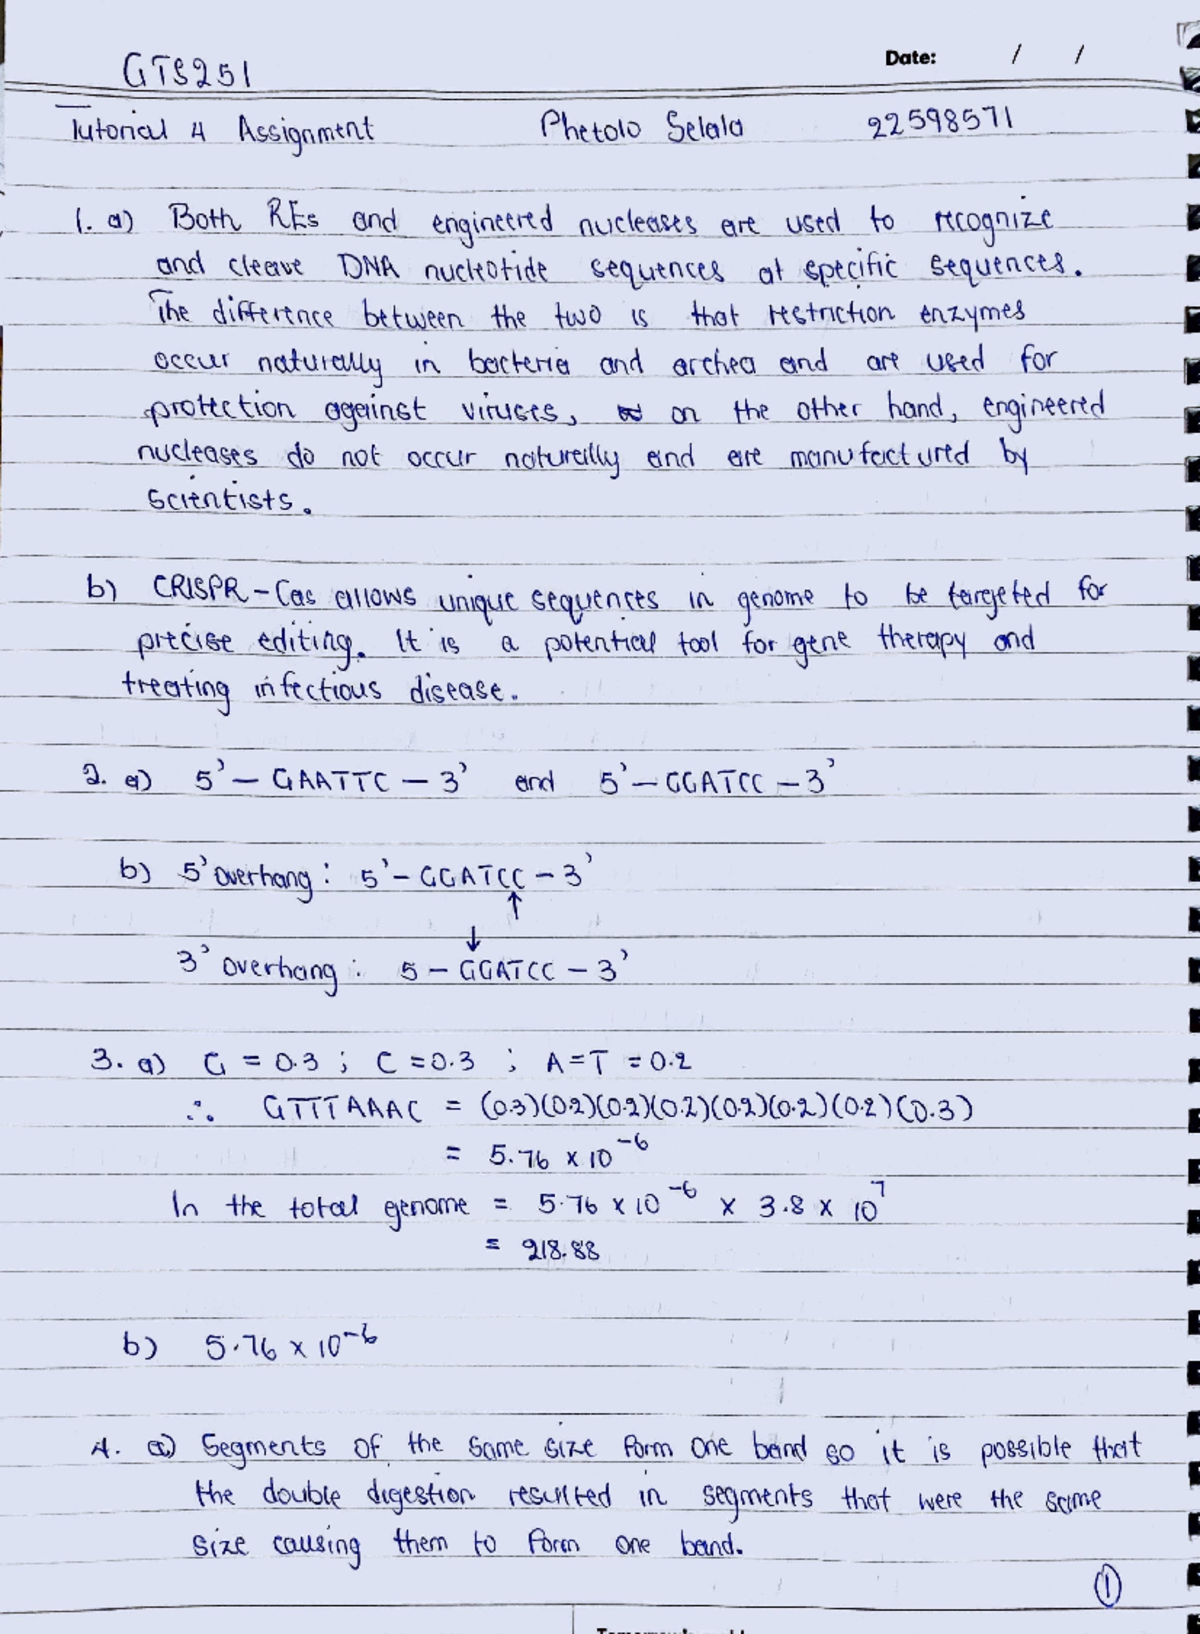 GTS251
Date: / /
Tutorial 4 Assignment Phetolo Selala 22598571
1. a) Both REs and engineered nucleases are used to recognize
and cleave DNA nucleotide sequences at specific sequences.
The difference between the two is that restriction enzymes
occur naturally in bacteria and archea and are used for
protection against viruses, on the other hand, engineered
nucleases do not occur naturally and are manufactured by
scientists.
b) CRISPR-Cas allows unique sequences in genome to be targeted for
precise editing. It is a potential tool for gene therapy and
treating infectious disease.
2. a) 5'- GAATTC - 3' and 5'- GGATCC - 3'
b) 5' overhang: 5'- GGATCC - 3'
↑
↓
3' overhang: 5 - GGATCC - 3'
3. a) G = 0.3 ; C = 0.3 ; A = T = 0.2
∴ GTTTAAAC = (0.3)(0.2)(0.2)(0.2)(0.2)(0.2)(0.2)(0.3)
= 5.76 × 10⁻⁶
In the total genome = 5.76 × 10⁻⁶ × 3.8 × 10⁷
= 218.88
b) 5.76 × 10⁻⁶
4. a) Segments of the same size form one band so it is possible that
the double digestion resulted in segments that were the same
size causing them to form one band.
①